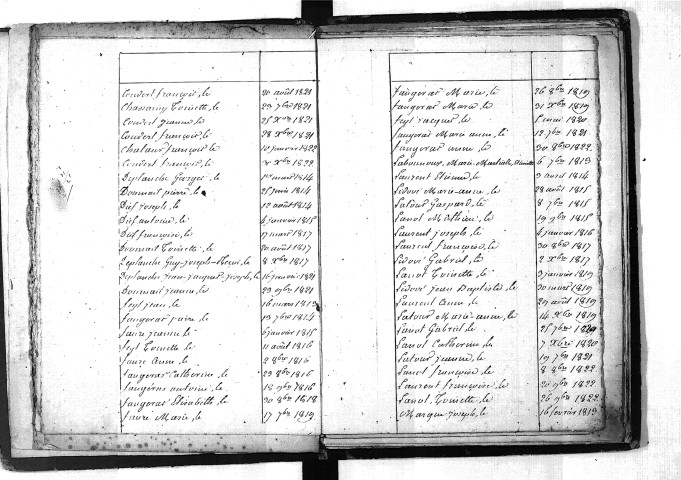 Coudert françois, le 20 août 1821
Chassaing Toinette, le 23 7bre 1821
Coudert Jeanne, le 25 Xbre 1821
Coudert françoise, le 28 Xbre 1821
Chalaux françois, le 10 janvier 1822
Coudert françois, le Xbre 1822
Deplanche Georges, le 1er mars 1814
Dommart pierre, le 25 juin 1814
Dief Joseph, le 12 août 1814
Dief antoine, le 6 janvier 1815
Dief françoise, le 17 mars 1817
Dommart Toinette, le 20 août 1817
Deplanche Guy-Joseph-Henri, le 8 Xbre 1817
Deplanche Jean-Jacques Joseph, le 16 février 1821
Dommart Jeanne, le 29 9bre 1821
feyt Jean, le 16 mars 1813
faugeras pierre, le 13 7bre 1814
faure Jeanne, le 6 janvier 1815
feyt Toinette, le 11 août 1816
faure Anne, le 2 8bre 1816
faugeras Catherine, le 29 8bre 1816
faugeras antoine, le 18 9bre 1816
faugeras Elisabeth, le 30 8bre 1818
faure Marie, le 17 7bre 1819
faugeras Marie, le 26 8bre 1819
faugeras Marie, le 31 Xbre 1819
feyt Jacques, le 1er mai 1820
faugeras Marie anne, le 12 7bre 1821
faugeras anne, le 30 8bre 1822
Marie, le 6 7bre 1813
Laurent Etienne, le 9 avril 1814
Ledoux Marie-anne, le 28 août 1815
Latour Gaspard, le 8 7bre 1815
Lanot Mathieu, le 19 9bre 1815
Laurent Joseph, le 6 janvier 1816
Laurent françoise, le 30 8bre 1817
Ledoux Gabriel, le 2 Xbre 1817
Lanot Toinette, le 9 janvier 1819
Ledoux Jean Baptiste, le 30 mars 1819
Laurent Anne, le 29 avril 1819
Latour Marie-anne, le 14 Xbre 1819
Lanot Gabriel, le 25 7bre
Lanot Catherine, le 7 Xbre 1820
Latour Jeanne, le 19 7bre 1821
Lanot françoise, le 8 8bre 1822
Laurent françoise, le 20 9bre 1822
Lanot Toinette, le 26 9bre 1822
Marque Joseph, le 16 février 1813